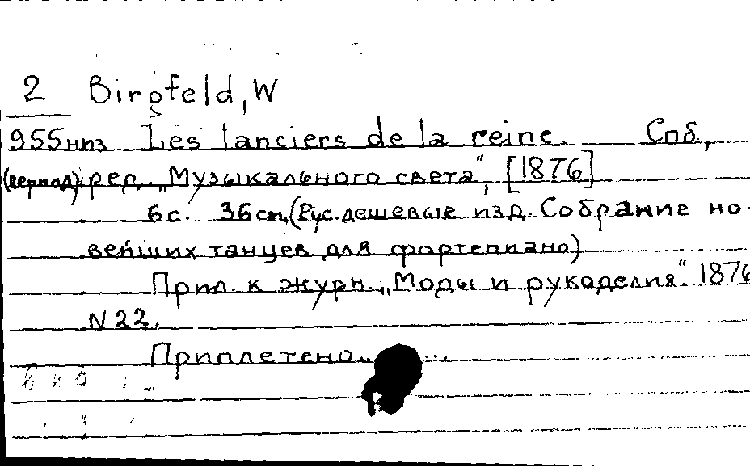 2 Birgfeld, W
955нпз Les lanciers de la reine. Соб,
(период) ред. „Музыкального света“, [1876]
6с. 36cm, (Рус. дешевые изд. Собрание но-
вейших танцев для фортепиано)
Прил. к журн. „Моды и рукоделия“. 1876
N22.
Приплетено